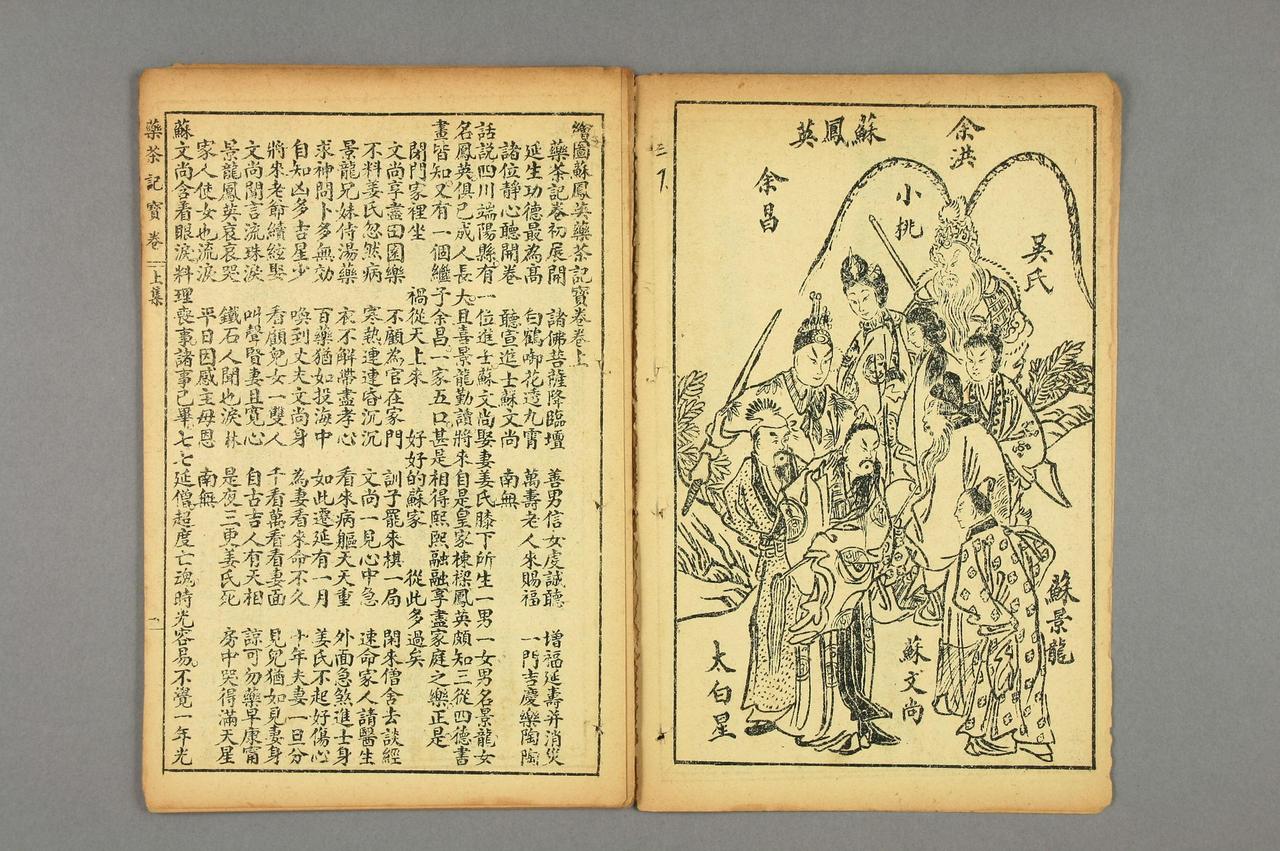 吳氏
余洪
小桃
蘇鳳英
余昌
蘇景龍
蘇文尚
太白星
繪圖蘇鳳英藥茶記寶卷卷上
藥茶記卷初展開 諸佛菩薩降臨壇 善男信女虔誠聽 增福延壽并消災
延生功德最為高 白鶴啣花透九霄 萬壽老人來賜福 一門吉慶樂陶陶
諸位靜心聽開卷 聽宣進士蘇文尚 南無
話說四川端陽縣有一位進士蘇文尚娶妻姜氏膝下所生一男一女男名景龍女
名鳳英俱已成人長大且喜景龍勤讀將來自是皇家棟樑鳳英頗知三從四德書
畫皆知又有一個繼子余昌一家五口甚是相得熙熙融融享盡家庭之樂正是
閉門家裡坐 禍從天上來 好好的蘇家 從此多過矣
文尚享盡田園樂 不顧為官在家門 訓子罷來棋一局 閑來僧舍去談經
不料姜氏忽然病 寒熱連連昏沉沉 文尚一見心中急 速命家人請醫生
景龍兄妹侍湯藥 衣不解帶盡孝心 看來病軀天天重 外面急煞進士身
求神問卜多無効 百藥猶如投海中 如此遷延有一月 姜氏不起好傷心
自知凶多吉星少 喚到丈夫文尚身 為妻看來命不久 少年夫妻一旦分
將來老爺續絃娶 看顧兒女一雙人 千看萬看看妻面 見兒猶如見妻身
文尚聞言流珠淚 叫聲賢妻且寬心 自古吉人有天相 諒可勿藥早康甯
景龍鳳英哀哀哭 鐵石人聞也淚淋 是夜三更姜氏死 房中哭得滿天星
家人使女也流淚 平日因感主母恩 南無
蘇文尚含着眼淚料理喪事諸事已畢七七延僧超度亡魂時光容易不覺一年光
藥茶記寶卷 上集 一